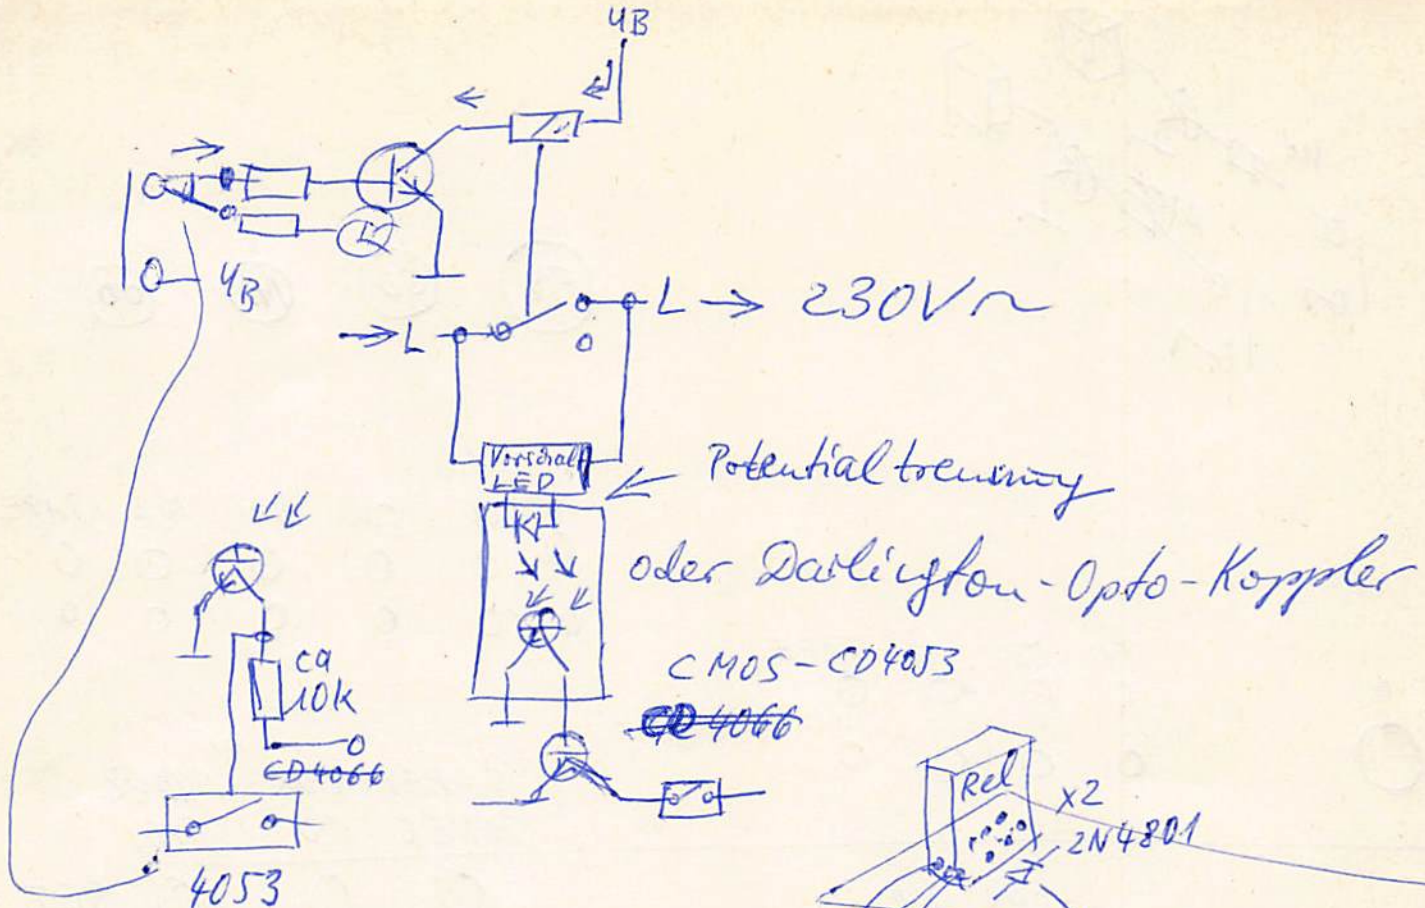 UB
UB
L
L → 230V~
Vorschalt
LED
Potentialtrennung
oder Darlington-Opto-Koppler
ca
10k
CMOS-CD4053
CD4066
CD4066
4053
Rel
x2
2N4801